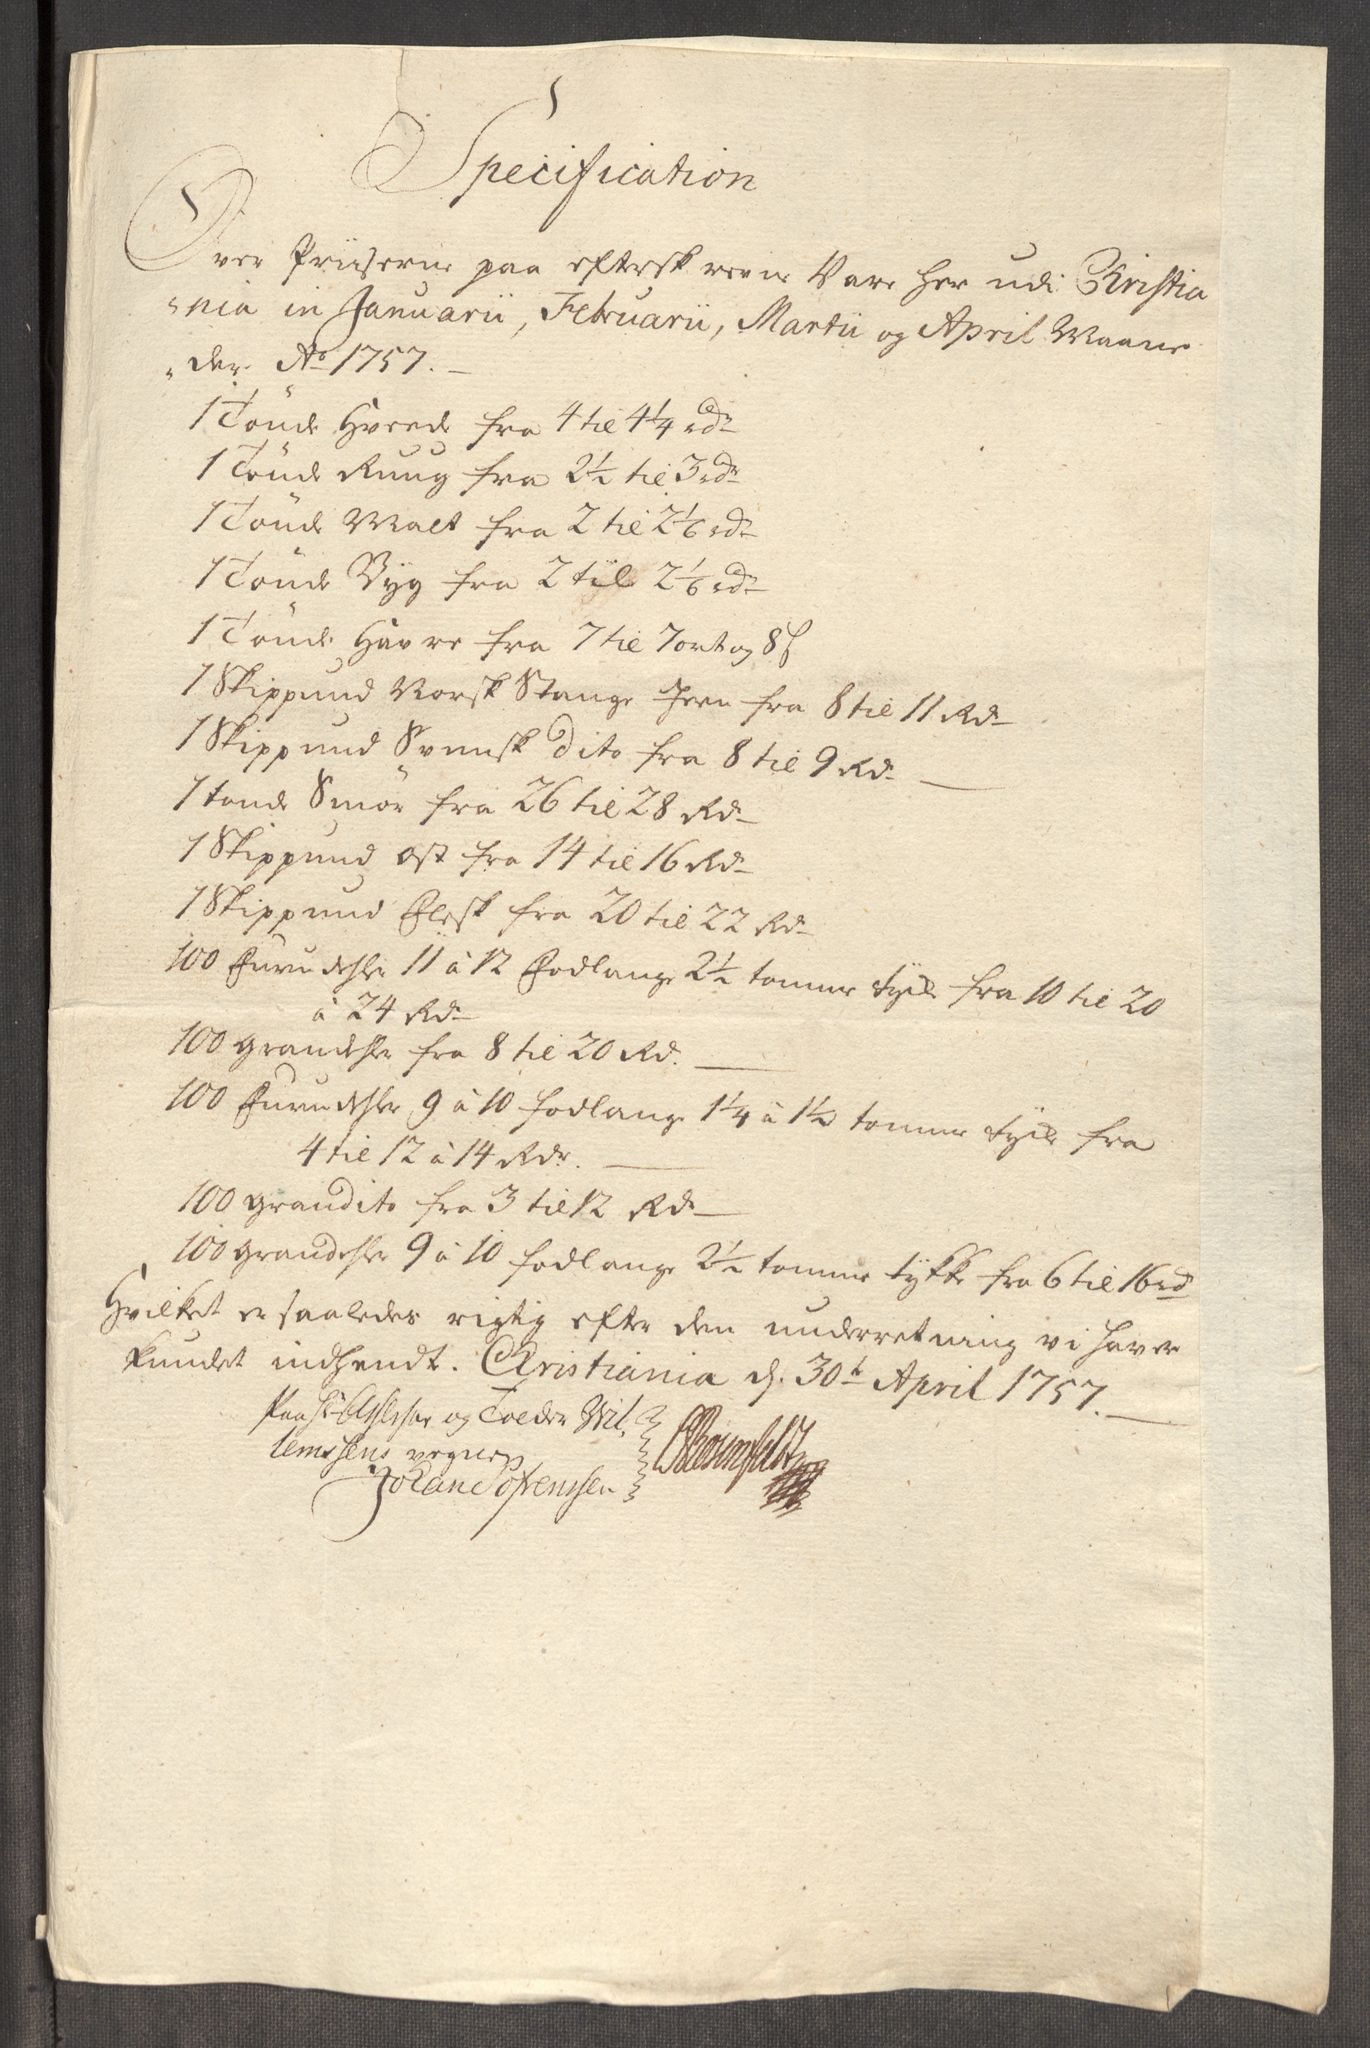 Specification
Over Priiserne paa efterskrevne Vare her udi Christia
"nia in Januarii, Februarii, Martii og April Maane
"der Ao 1757.
1 Tönde Hvede fra 4 til 4¼ rdr
1 Tönde Ruug fra 2½ til 3 rdr
1 Tönde Malt fra 2 til 2⅙ rdr
1 Tönde Byg fra 2 til 2⅙ rdr
1 Tönde Havre fra 7 til 7 ort og 8 s
1 Skippund Norsk Stange Jern fra 8 til 11 Rdr
1 Skippund Svensk dito fra 8 til 9 Rdr
1 tönde Smör fra 26 til 28 Rdr
1 Skippund Ost fra 14 til 16 Rdr
1 Skippund Flesk fra 20 til 22 Rdr
100 Furudehler 11 à 12 Fodlange 2½ tomme tyk fra 10 til 20
à 24 Rdr
100 Grandehler fra 8 til 20 Rd.
100 Furudehler 9 à 10 fodlange 1¼ à 1½ tomme tyk fra
4 til 12 à 14 Rdr.
100 Grandito fra 3 til 12 Rdr
100 Grandehler 9 à 10 fodlange 2½ tomme tykke fra 6 til 16 rd
Hvilket er saaledes rigtig efter den underretning vi haver
kundet indhendt. Christiania d. 30te April 1757.
Paa Hr og Tolder Wil,
lemssens vegne
Johan Sörenssen